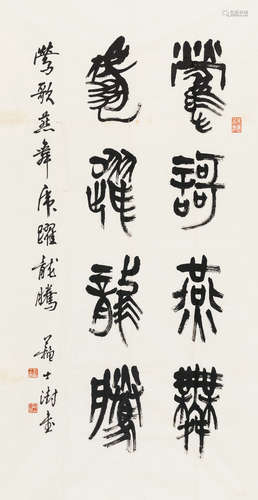 莺歌燕舞
虎躍龍騰
莺歌燕舞虎躍龍騰 蘇士澍書